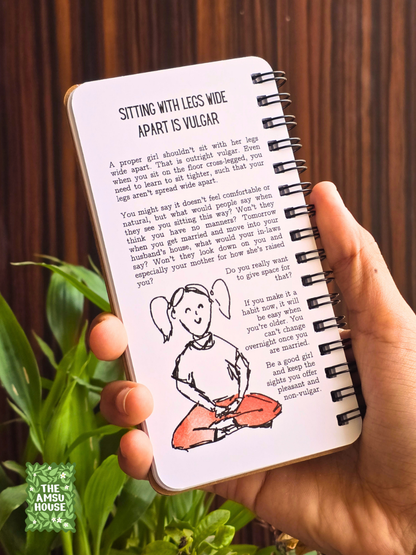 SITTING WITH LEGS WIDE
APART IS VULGAR
A proper girl shouldn't sit with her legs
wide apart. That is outright vulgar. Even
when you sit on the floor cross-legged, you
need to learn to sit tighter, such that your
legs aren't spread wide apart.
You might say it doesn't feel comfortable or
natural, but what would people say when
they see you sitting this way? Won't they
think you have no manners? Tomorrow
when you get married and move into your
husband's house, what would your in-laws
say? Won't they look down on you and
especially your mother for how she's raised
you?
Do you really want
to give space for
that?
If you make it a
habit now, it will
be easy when
you're older. You
can't change
overnight once you
are married.
Be a good girl
and keep the
sights you offer
pleasant and
non-vulgar.
THE
AMSU
HOUSE